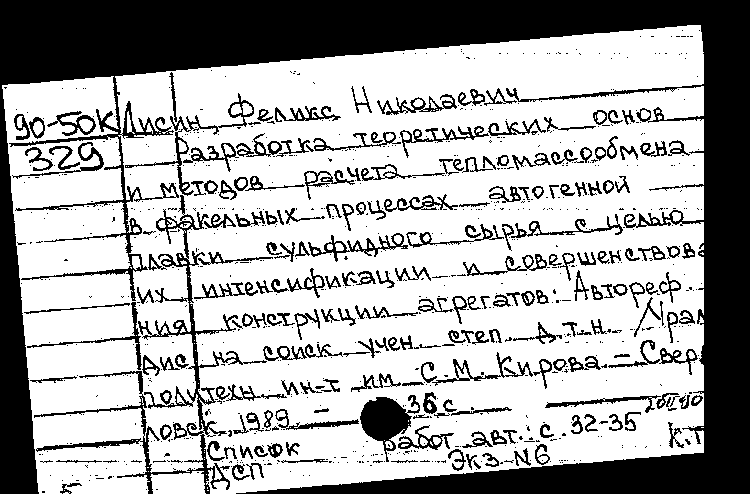 90-50К Лисин, Феликс Николаевич
329 Разработка теоретических основ
и методов расчета тепломассообмена
в факельных процессах автогенной
плавки сульфидного сырья с целью
их интенсификации и совершенствова
ния конструкции агрегатов: Автореф.
дис. на соиск. учен. степ. д.т.н. /Урал
политехн. ин-т им. С.М. Кирова. – Сверд
ловск, 1989. – 36 с.
Список работ авт.: с. 32-35
ДСП Экз N6 К.Т
5